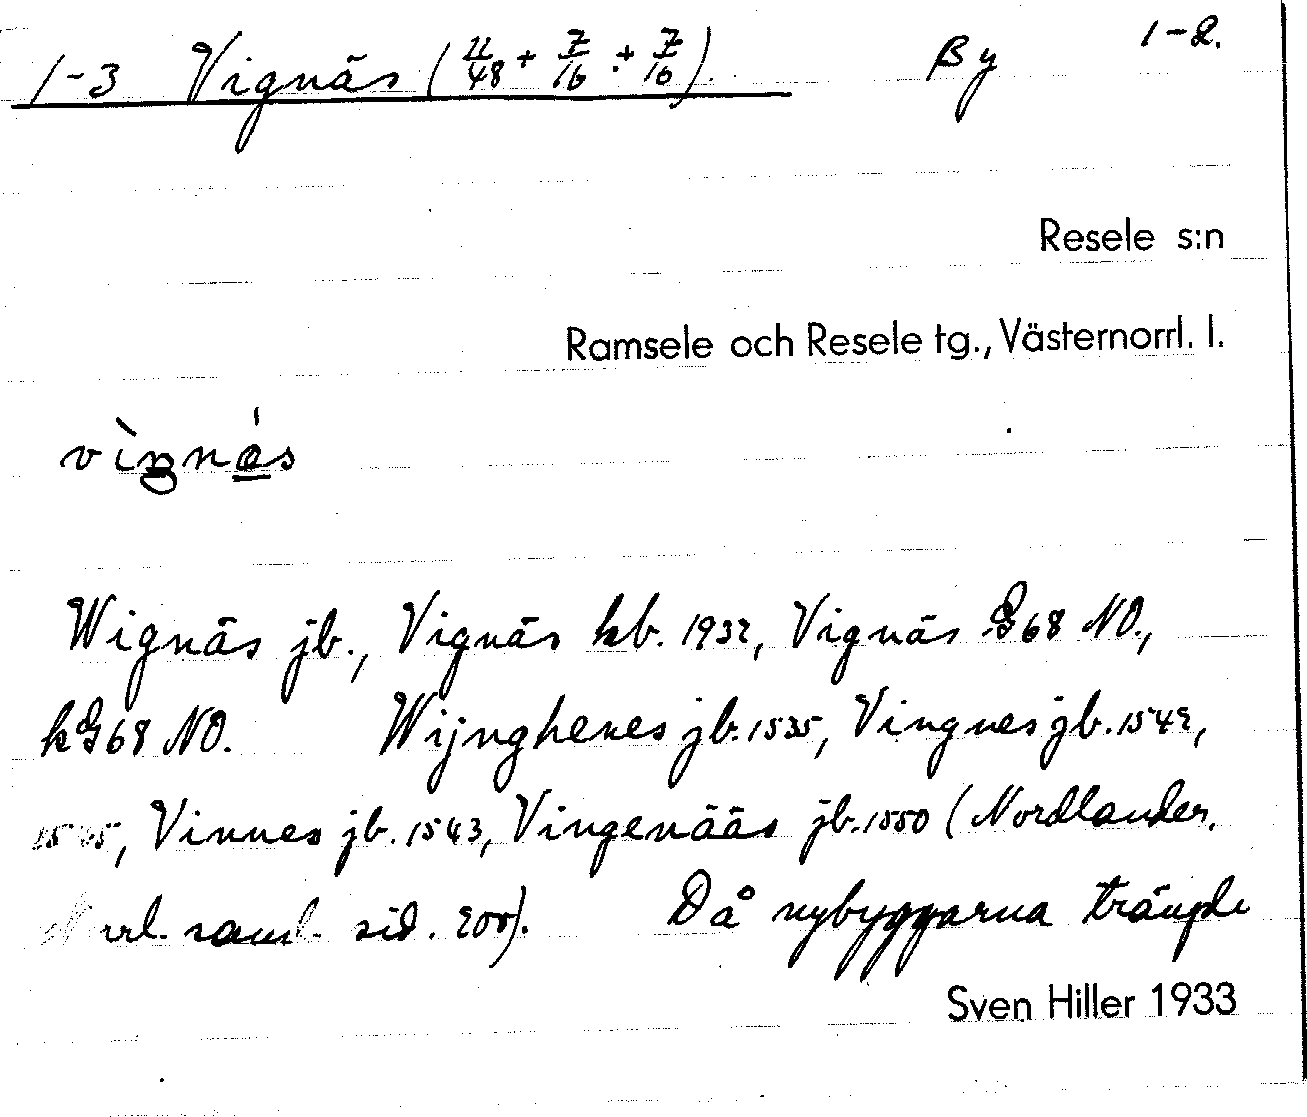 1-3 Vignäs (11/48 + 7/16 + 7/16). By 1-2.
Resele s:n
Ramsele och Resele tg., Västernorrl. l.
vìŋnás
Wignäs jb., Vignäs kb. 1932, Vignäs G68 NO.,
kG68 NO. Wijnghenes jb. 1535, Vingnes jb. 1542,
Vinnes jb. 1543, Vingenääs jb. 1550 (Nordlander,
Norrl. saml. sid. 200). Då nybyggarna trängde
Sven Hiller 1933